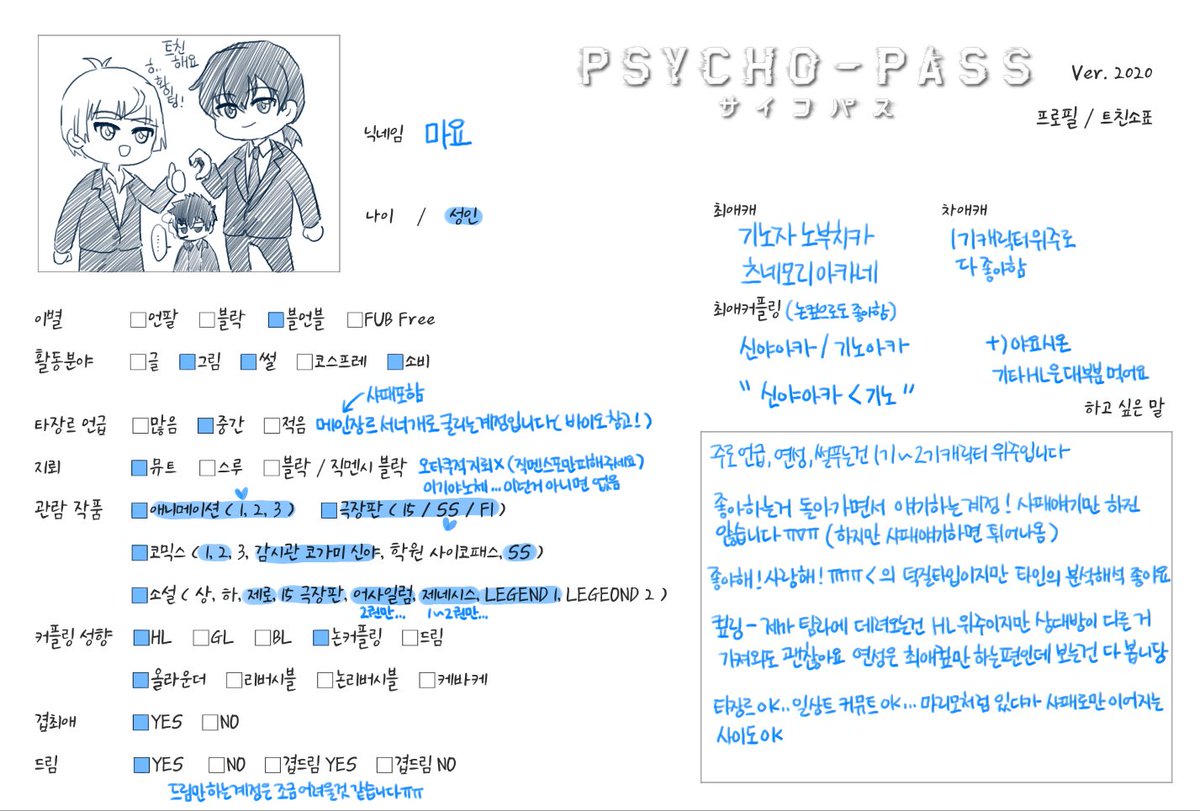 트친
해요
ㅎ..
황팅!
(....)
PSYCHO-PASS
サイコパス
Ver. 2020
프로필 / 트친소표
닉네임 마요
나이 / 성인
이별 언팔 블락 블언블 FUB Free
활동분야 글 그림 썰 코스프레 소비
사패포함
타장르 언급 많음 중간 적음 메인장르 서너개로 굴리는계정입니다(바이오참고!)
지뢰 뮤트 스루 블락 / 직멘시 블락 오타쿠적지뢰X (직멘스포만피해주세요)
이기야노체... 이딴거 아니면 없음
관람 작품 애니메이션 ( 1, 2, 3 ) 극장판 ( 15 / SS / FI )
코믹스 ( 1, 2, 3, 감시관 코가미 신야, 학원 사이코패스, SS )
소설 ( 상, 하, 제로, 15 극장판, 어사일럼, 제네시스, LEGEND 1, LEGEOND 2 )
2권만... 1~2권만...
커플링 성향 HL GL BL 논커플링 드림
올라운더 리버시블 논리버시블 케바케
겹최애 YES NO
드림 YES NO 겹드림 YES 겹드림 NO
드림만하는계정은 조금어려울것 같습니다ㅠㅠ
최애캐
기노자 노부치카
츠네모리 아카네
차애캐
1기캐릭터위주로
다 좋아함
최애커플링 (논컾으로도 좋아함)
신야아카 / 기노아카
" 신야아카 < 기노 "
+) 야요시온
기타HL은대부분먹어요
하고 싶은 말
주로언급, 연성, 썰푸는건 1기~2기캐릭터 위주입니다
좋아하는거 돌아가면서 얘기하는계정! 사패얘기만 하진
않습니다 ㅠㅠㅠ (하지만 사패얘기하면 튀어나옴)
좋아해! 사랑해! ㅠㅠㅠ < 의 덕질타입이지만 타인의 분석해석 좋아요
컾링 - 제가 탐라에 데려오는건 HL위주이지만 상대방이 다른 거
가져와도 괜찮아요 연성은 최애컾만 하는편인데 보는건 다 봅니당
타장르OK.. 일상트 커뮤트 OK... 마리모처럼 있다가 사패로만 이어지는
사이도OK